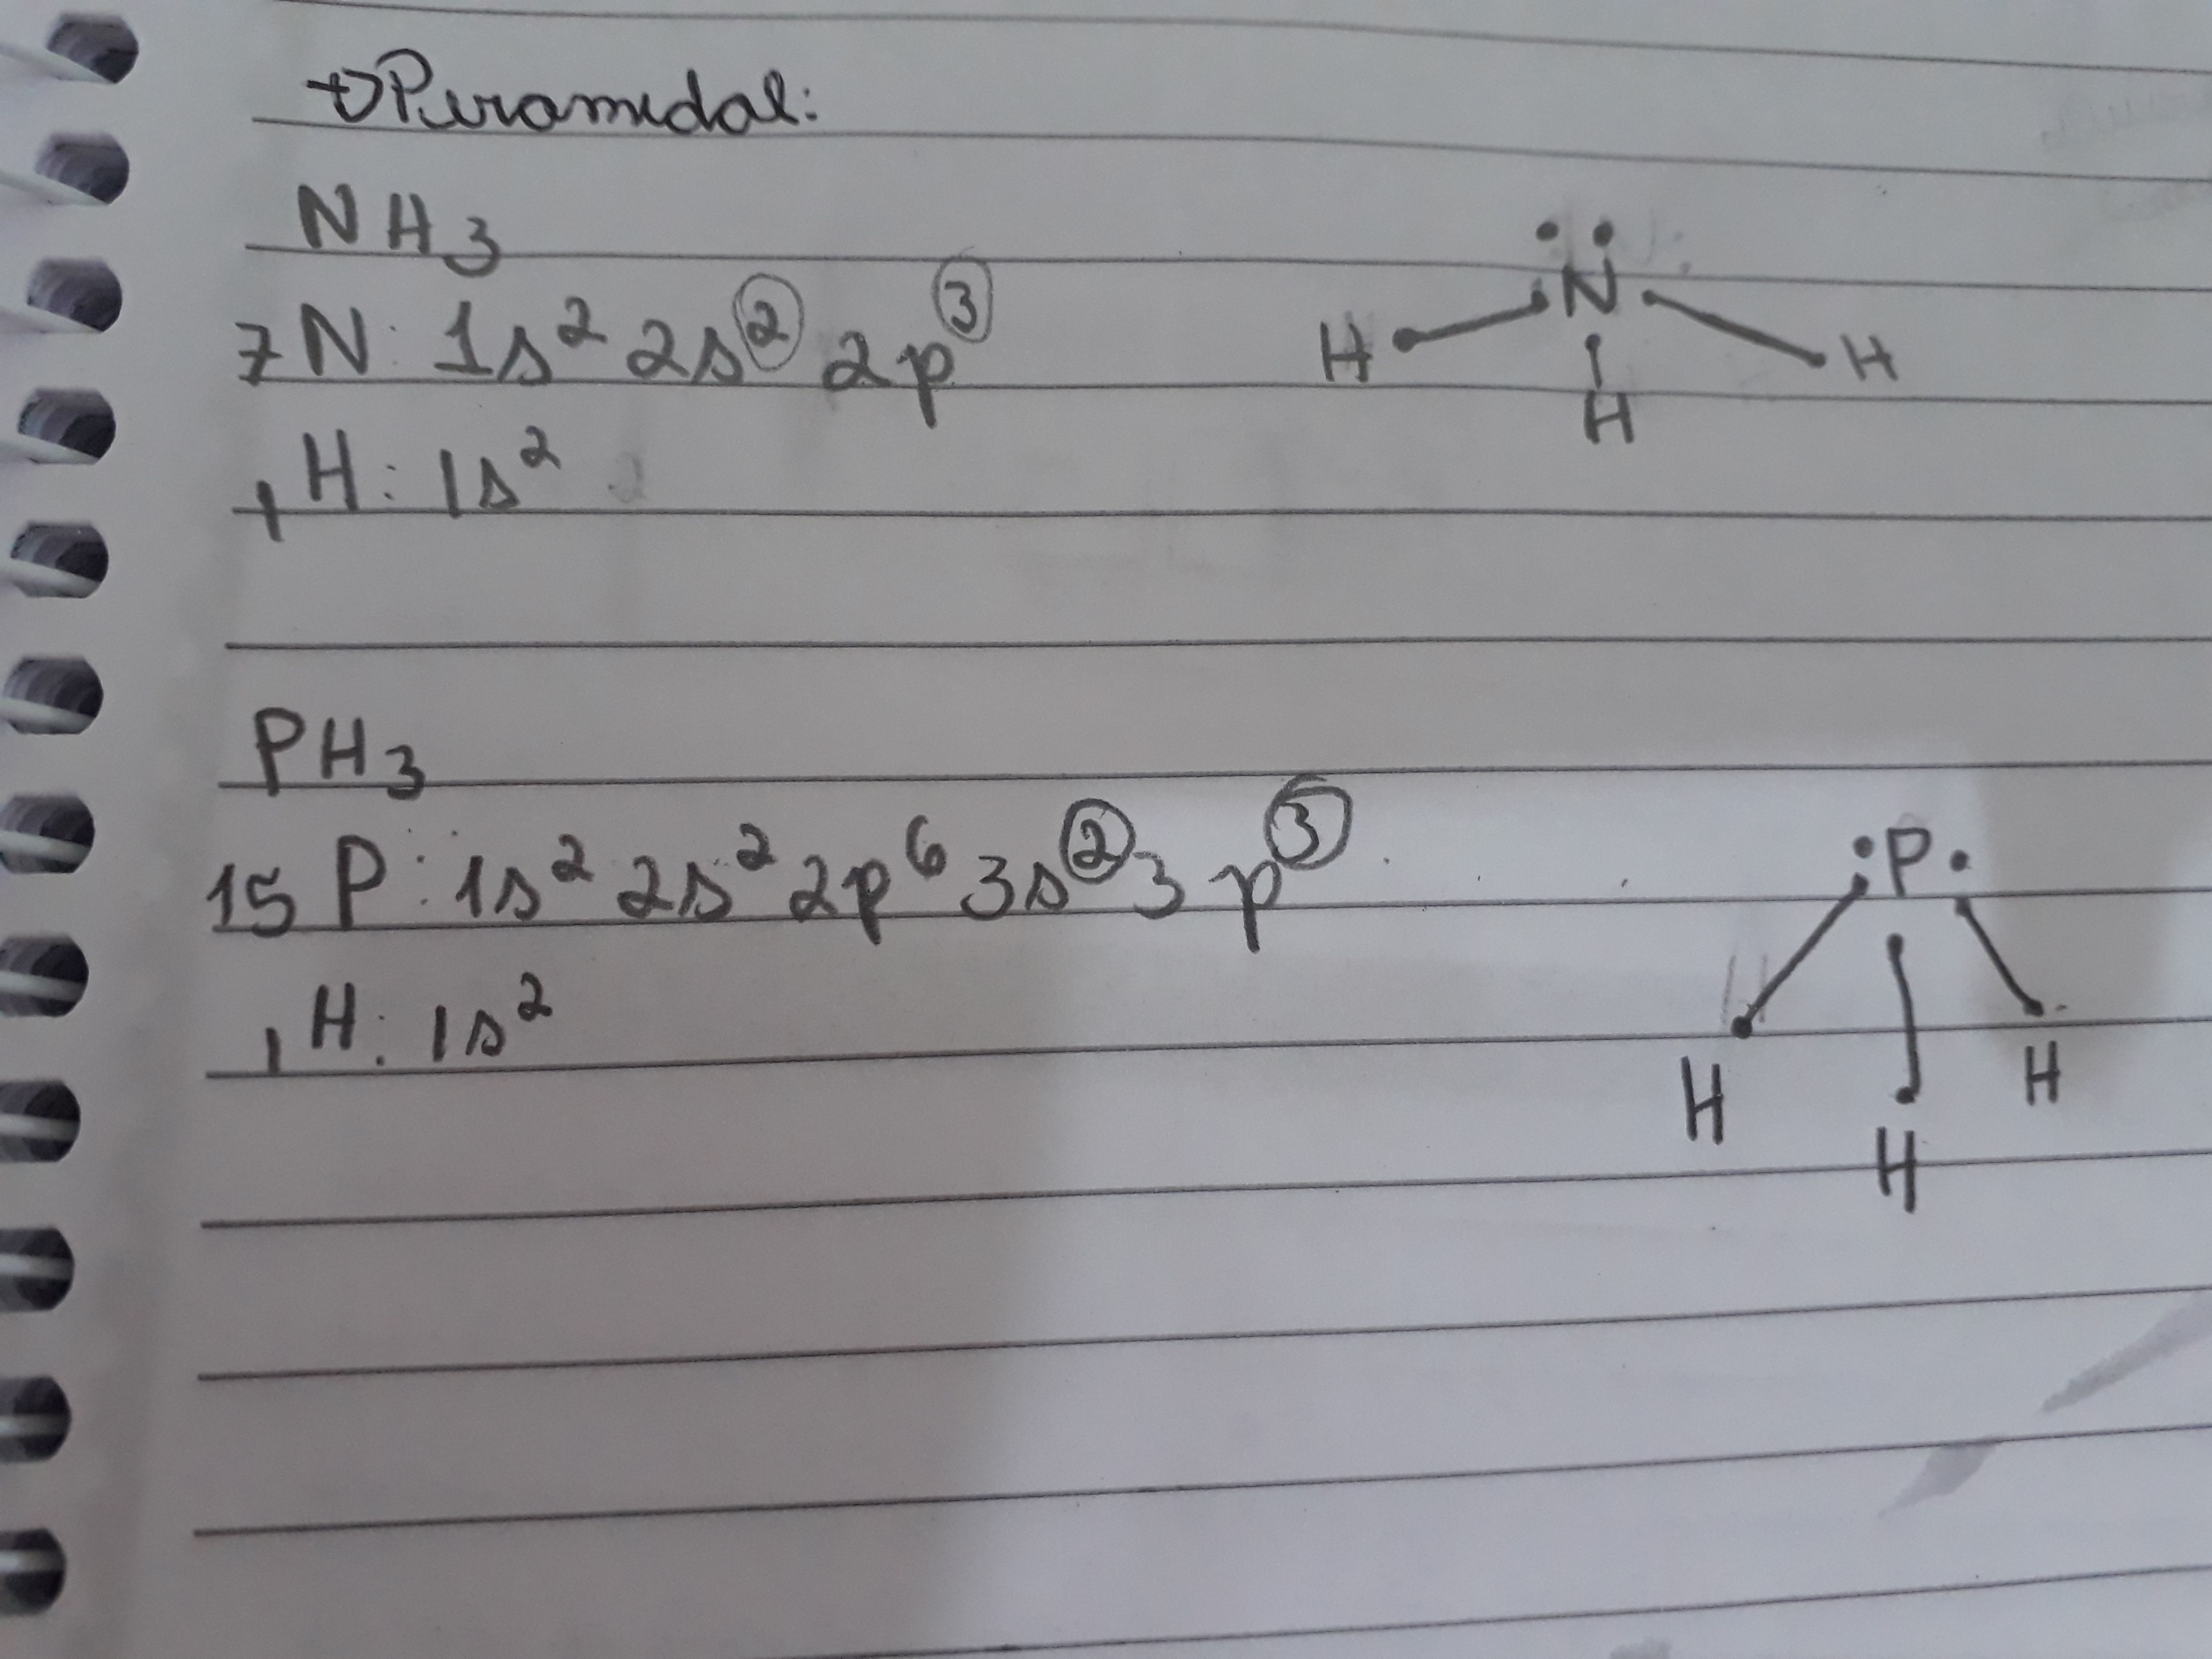 → Piramidal:
NH3
7N: 1s² 2s② 2p③
1H: 1s²
N
H H
H
PH3
15P: 1s² 2s² 2p⁶ 3s② 3p③
1H: 1s²
P
H H
H